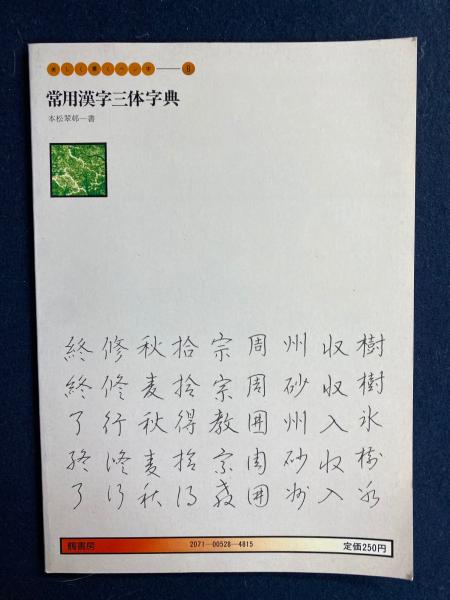 しく書くペン字
常用漢字三体字典
本松翠邨—書
樹樹氷樹氷
収収入収入
州砂州砂州
周周囲周囲
宗宗教宗教
拾拾得拾得
秋麦秋麦秋
修修行修行
終終了終了
鶴書房
2071—00528—4815
定価250円